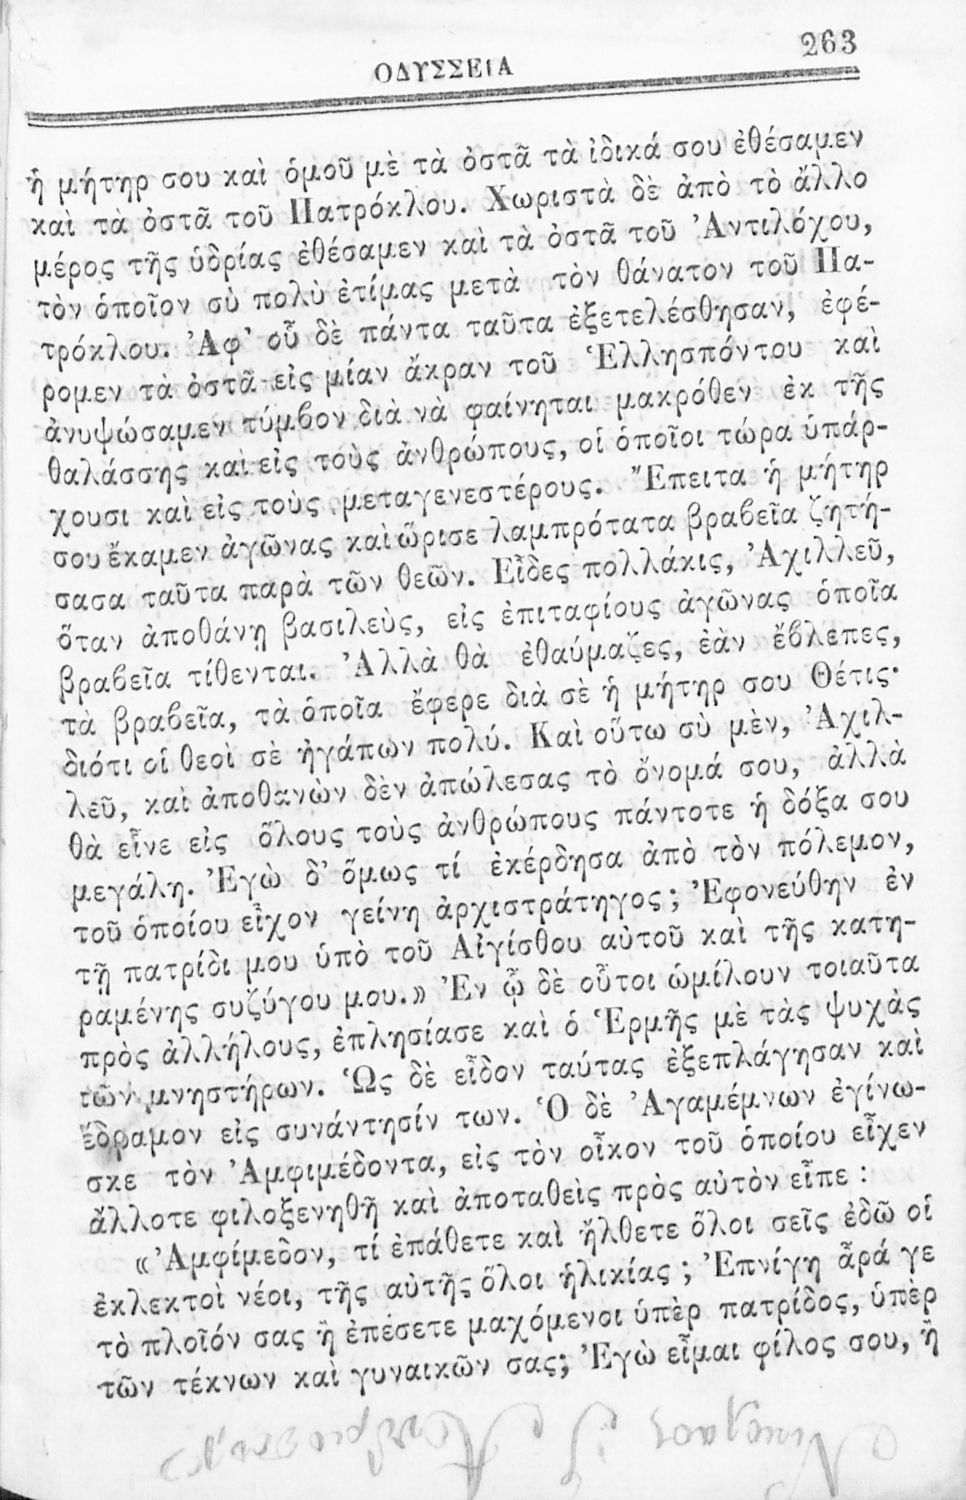 ΟΔΥΣΣΕΙΑ
263
ἡ μήτηρ σου καὶ ὁμοῦ μὲ τὰ ὀστᾶ τὰ ἰδικά σου ἐθέσαμεν
καὶ τὰ ὀστᾶ τοῦ Πατρόκλου. Χωριστὰ δὲ ἀπὸ τὸ ἄλλο
μέρος τῆς ὑδρίας ἐθέσαμεν καὶ τὰ ὀστᾶ τοῦ Ἀντιλόχου,
τὸν ὁποῖον σὺ πολὺ ἐτίμας μετὰ τὸν θάνατον τοῦ Πα-
τρόκλου. Ἀφ' οὗ δὲ πάντα ταῦτα ἐξετελέσθησαν, ἐφέ-
ρομεν τὰ ὀστᾶ εἰς μίαν ἄκραν τοῦ Ἑλλησπόντου καὶ
ἀνυψώσαμεν τύμβον διὰ νὰ φαίνηται μακρόθεν ἐκ τῆς
θαλάσσης καὶ εἰς τοὺς ἀνθρώπους, οἱ ὁποῖοι τώρα ὑπάρ-
χουσι καὶ εἰς τοὺς μεταγενεστέρους. Ἔπειτα ἡ μήτηρ
σου ἔκαμεν ἀγῶνας καὶ ὥρισε λαμπρότατα βραβεῖα ζητή-
σασα ταῦτα παρὰ τῶν θεῶν. Εἶδες πολλάκις, Ἀχιλλεῦ,
ὅταν ἀποθάνῃ βασιλεὺς, εἰς ἐπιταφίους ἀγῶνας ὁποῖα
βραβεῖα τίθενται. Ἀλλὰ θὰ ἐθαύμαζες, ἐὰν ἔβλεπες,
τὰ βραβεῖα, τὰ ὁποῖα ἔφερε διὰ σὲ ἡ μήτηρ σου Θέτις·
διότι οἱ θεοὶ σὲ ἠγάπων πολύ. Καὶ οὕτω σὺ μὲν, Ἀχιλ-
λεῦ, καὶ ἀποθανὼν δὲν ἀπώλεσας τὸ ὄνομά σου, ἀλλὰ
θὰ εἶνε εἰς ὅλους τοὺς ἀνθρώπους πάντοτε ἡ δόξα σου
μεγάλη. Ἐγὼ δ' ὅμως τί ἐκέρδησα ἀπὸ τὸν πόλεμον,
τοῦ ὁποίου εἶχον γείνῃ ἀρχιστράτηγος; Ἐφονεύθην ἐν
τῇ πατρίδι μου ὑπὸ τοῦ Αἰγίσθου αὐτοῦ καὶ τῆς κατη-
ραμένης συζύγου μου.» Ἐν ᾧ δὲ οὗτοι ὡμίλουν τοιαῦτα
πρὸς ἀλλήλους, ἐπλησίασε καὶ ὁ Ἑρμῆς μὲ τὰς ψυχὰς
τῶν μνηστήρων. Ὡς δὲ εἶδον ταύτας ἐξεπλάγησαν καὶ
ἔδραμον εἰς συνάντησίν των. Ὁ δὲ Ἀγαμέμνων ἐγίνω-
σκε τὸν Ἀμφιμέδοντα, εἰς τὸν οἶκον τοῦ ὁποίου εἶχεν
ἄλλοτε φιλοξενηθῆ καὶ ἀποταθεὶς πρὸς αὐτὸν εἶπε :
«Ἀμφίμεδον, τί ἐπάθετε καὶ ἤλθετε ὅλοι σεῖς ἐδῶ οἱ
ἐκλεκτοὶ νέοι, τῆς αὐτῆς ὅλοι ἡλικίας ; Ἐπνίγη ἆρά γε
τὸ πλοῖόν σας ἢ ἐπέσετε μαχόμενοι ὑπὲρ πατρίδος, ὑπὲρ
τῶν τέκνων καὶ γυναικῶν σας; Ἐγὼ εἶμαι φίλος σου, ἢ